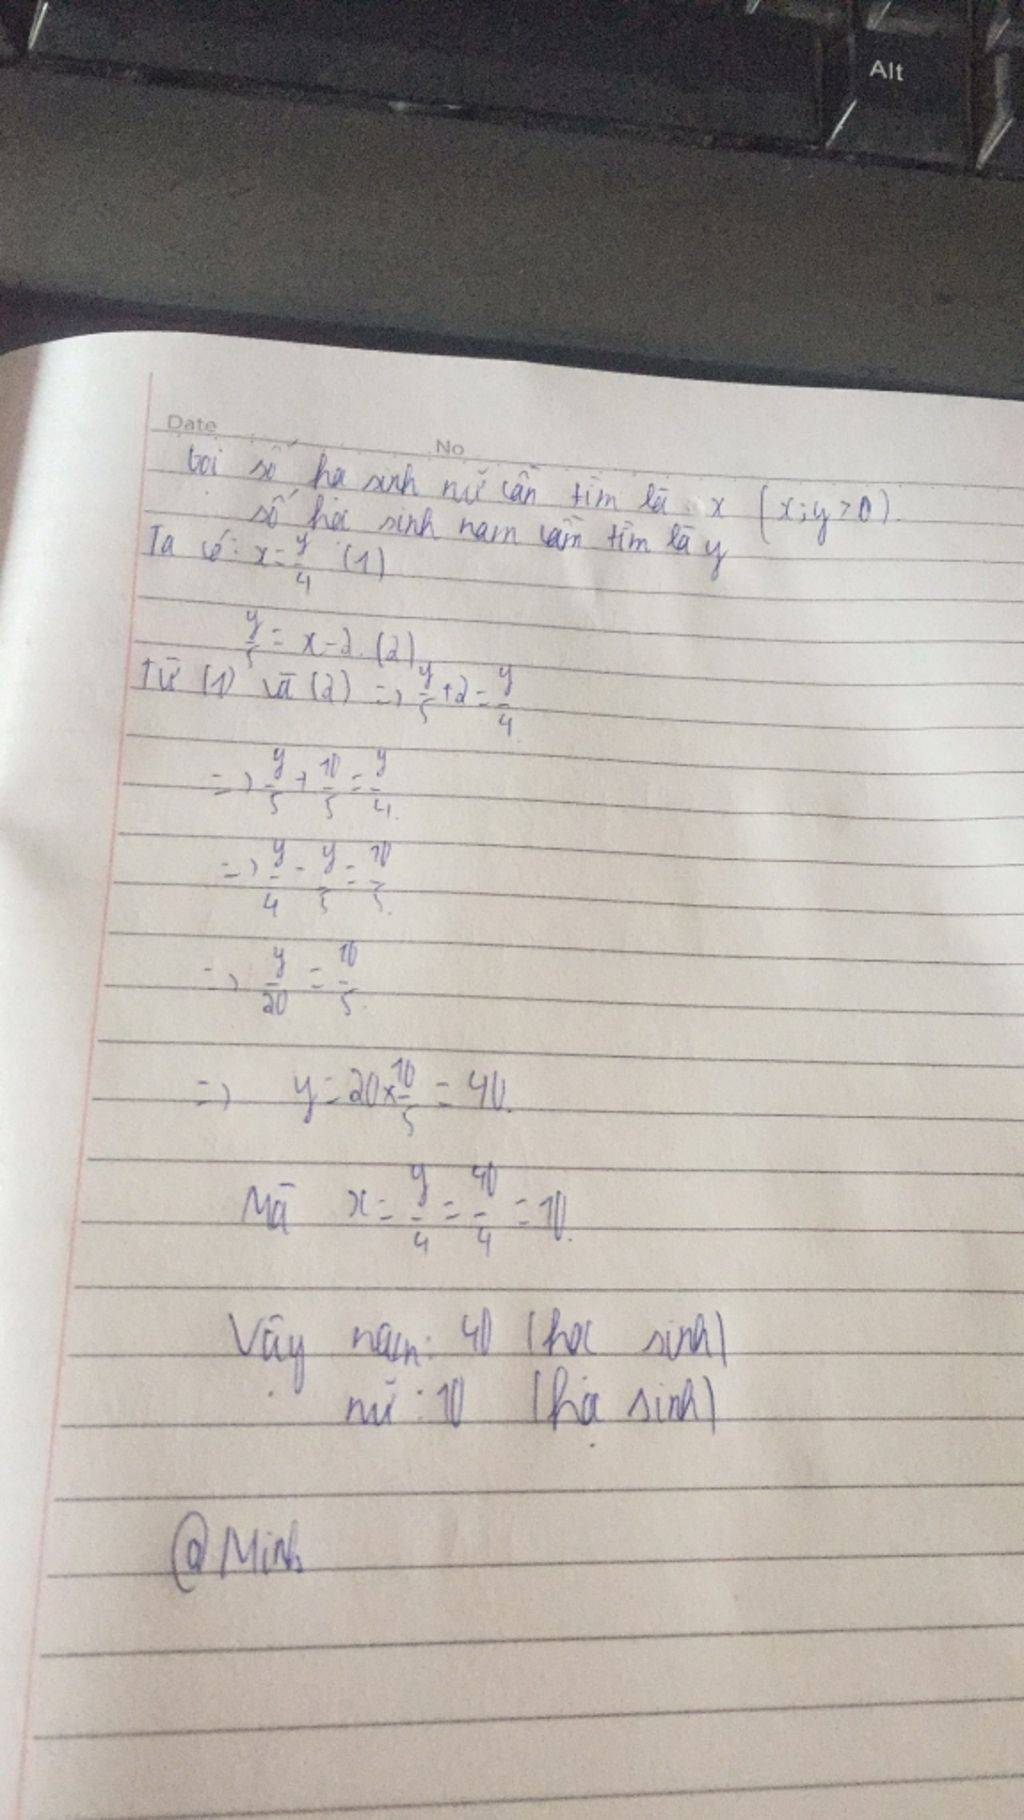 Alt
Date No
Gọi số học sinh nữ cần tìm là x (x;y>0)
số học sinh nam cần tìm là y
Ta có: x = y/4 (1)
y/5 = x - 2. (2)
Từ (1) và (2) => y/5 + 2 = y/4
=> y/5 + 10/5 = y/4
=> y/4 - y/5 = 10/5
=> y/20 = 10/5
=> y = 20 x 10/5 = 40.
Mà x = y/4 = 40/4 = 10.
Vậy nam: 40 (học sinh)
nữ: 10 (học sinh)
@Minh